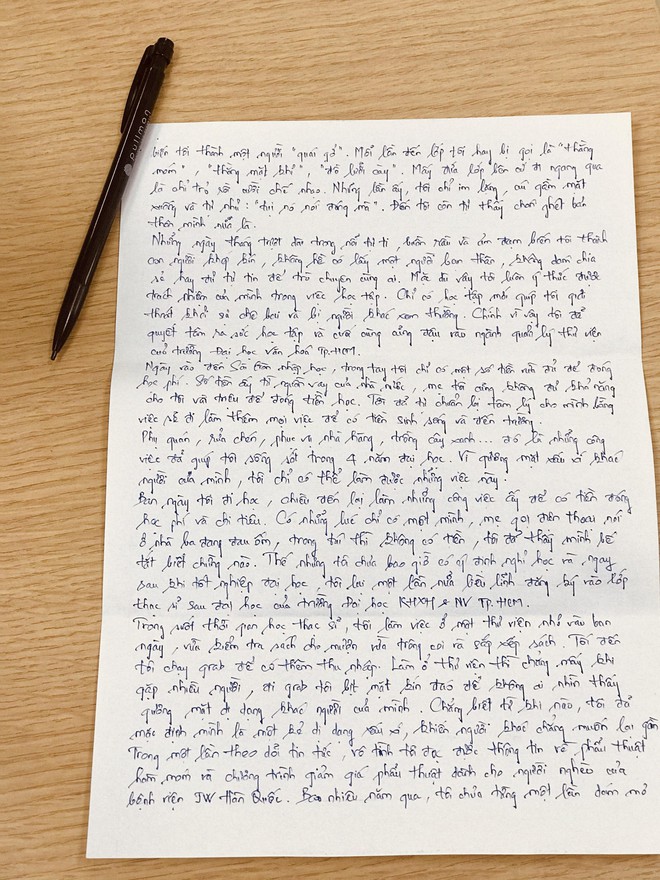 pullman
biến tôi thành một người "quái gở". Mỗi lần đến lớp tôi hay bị gọi là "thằng
móm", "thằng mặt khỉ", "đồ lưỡi cày". Mấy đứa lớp lớn cứ đi ngang qua
là chỉ trỏ và cười chế nhạo. Những lần ấy, tôi chỉ im lặng, cúi gằm mặt
xuống và tự nhủ: "tụi nó nói đúng mà". Đến tôi còn tự thấy chán ghét bản
thân mình nữa là.
Những ngày tháng trượt dài trong nỗi tự ti, buồn rầu và ảm đạm biến tôi thành
con người khép kín, không hề có lấy một người bạn thân, không dám chia
sẻ hay đủ tự tin để trò chuyện cùng ai. Mặc dù vậy tôi luôn ý thức được
trách nhiệm của mình trong việc học tập. Chỉ có học tập mới giúp tôi giải
thoát khỏi sự chê bai và bị người khác xem thường. Chính vì vậy tôi đã
quyết tâm ra sức học tập và cuối cùng cũng đậu vào ngành quản lý thư viện
của trường Đại học Văn hoá TP.HCM.
Ngày vào đến Sài Gòn nhập học, trong tay tôi chỉ có một số tiền vừa đủ để đóng
học phí. Số tiền ấy từ nguồn vay của nhà nước, mẹ tôi cũng không đủ khả năng
cho tôi vài triệu để đóng tiền học. Tôi đã tự chuẩn bị tâm lý cho mình bằng
việc sẽ đi làm thêm mọi việc để có tiền sinh sống và đến trường.
Phụ quán, rửa chén, phục vụ nhà hàng, trồng cây xanh... đó là những công
việc đã giúp tôi sống sót trong 4 năm đại học. Vì gương mặt xấu xí khác
người của mình, tôi chỉ có thể làm được những việc này.
Ban ngày tôi đi học, chiều đến lại làm những công việc ấy để có tiền đóng
học phí và chi tiêu. Có những lúc chỉ có một mình, mẹ gọi điện thoại nói
ở nhà ba đang đau ốm, trong túi thì không có tiền, tôi đã thấy mình bế
tắt biết chừng nào. Thế nhưng tôi chưa bao giờ có ý định nghỉ học và ngay
sau khi tốt nghiệp đại học, tôi lại một lần nữa liều lĩnh đăng ký vào lớp
thạc sĩ sau đại học của trường Đại học KHXH & NV TP.HCM.
Trong suốt thời gian học thạc sĩ, tôi làm việc ở một thư viện nhỏ vào ban
ngày, vừa kiểm tra sách cho mượn vừa trông coi và sắp xếp sách. Tối đến
tôi chạy grab để có thêm thu nhập. Làm ở thư viện thì chẳng mấy khi
gặp nhiều người, đi grab tôi bịt mặt kín đáo để không ai nhìn thấy
gương mặt dị dạng khác người của mình. Chẳng biết từ khi nào, tôi đã
mặc định mình là một kẻ dị dạng xấu xí, khiến người khác chẳng muốn lại gần.
Trong một lần theo dõi tin tức, vô tình tôi đọc được thông tin về phẫu thuật
hàm móm và chương trình giảm giá phẫu thuật dành cho người nghèo của
bệnh viện JW Hàn Quốc. Bao nhiêu năm qua, tôi chưa từng một lần dám mơ